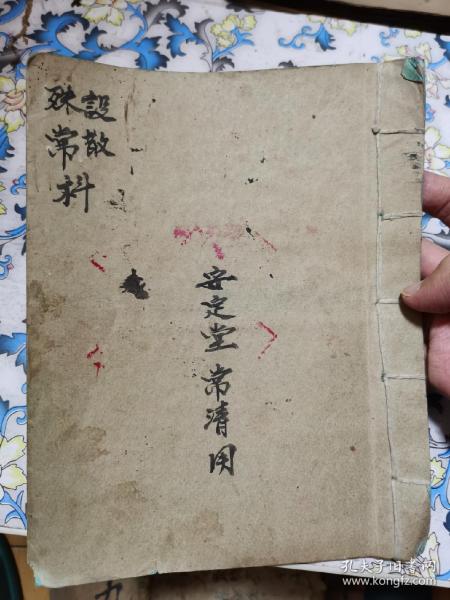 設散
殊常科
安定堂常清用
九
孔夫子旧书网
www.kongfz.com